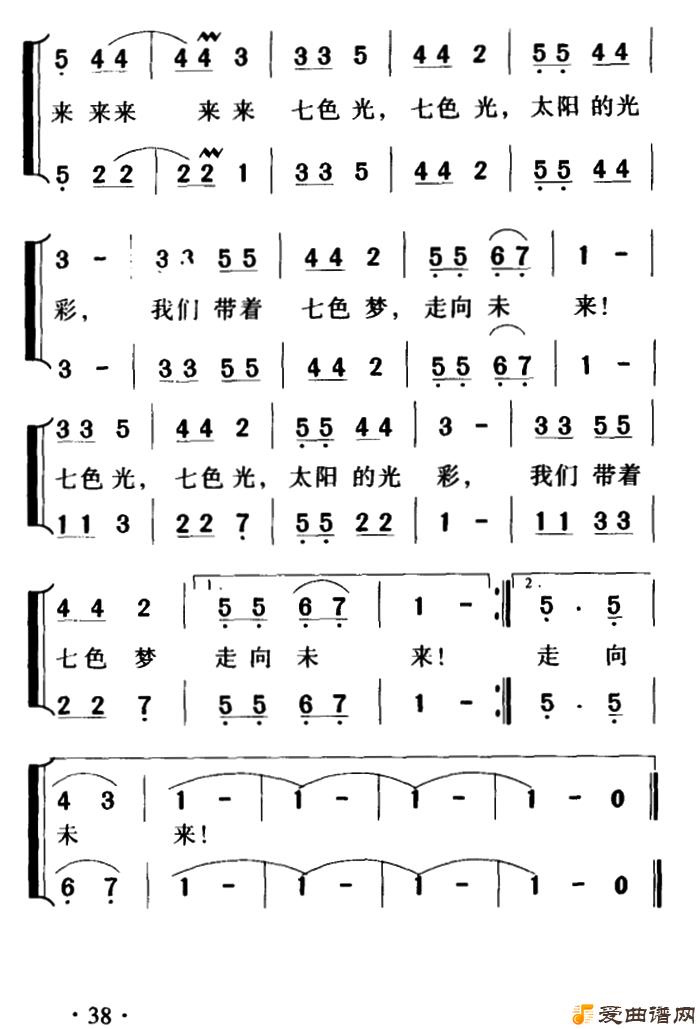 5 44 | 44 3 | 33 5 | 44 2 | 55 44 |
来 来来 来 来 七色 光， 七色 光， 太阳 的光
5 22 | 22 1 | 33 5 | 44 2 | 55 44 |
3 - | 33 55 | 44 2 | 55 67 | 1 - |
彩， 我们 带着 七色 梦， 走向 未 来！
3 - | 33 55 | 44 2 | 55 67 | 1 - |
33 5 | 44 2 | 55 44 | 3 - | 33 55 |
七色 光， 七色 光， 太阳 的光 彩， 我们 带着
11 3 | 22 7 | 55 22 | 1 - | 11 33 |
1. 2.
44 2 | 55 67 | 1 - :‖ 5 . 5 |
七色 梦 走向 未 来！ 走 向
22 7 | 55 67 | 1 - :‖ 5 . 5 |
4 3 | 1 - | 1 - | 1 - | 1 - 0 ‖
未 来！
6 7 | 1 - | 1 - | 1 - | 1 - 0 ‖
· 38 ·
爱曲谱网